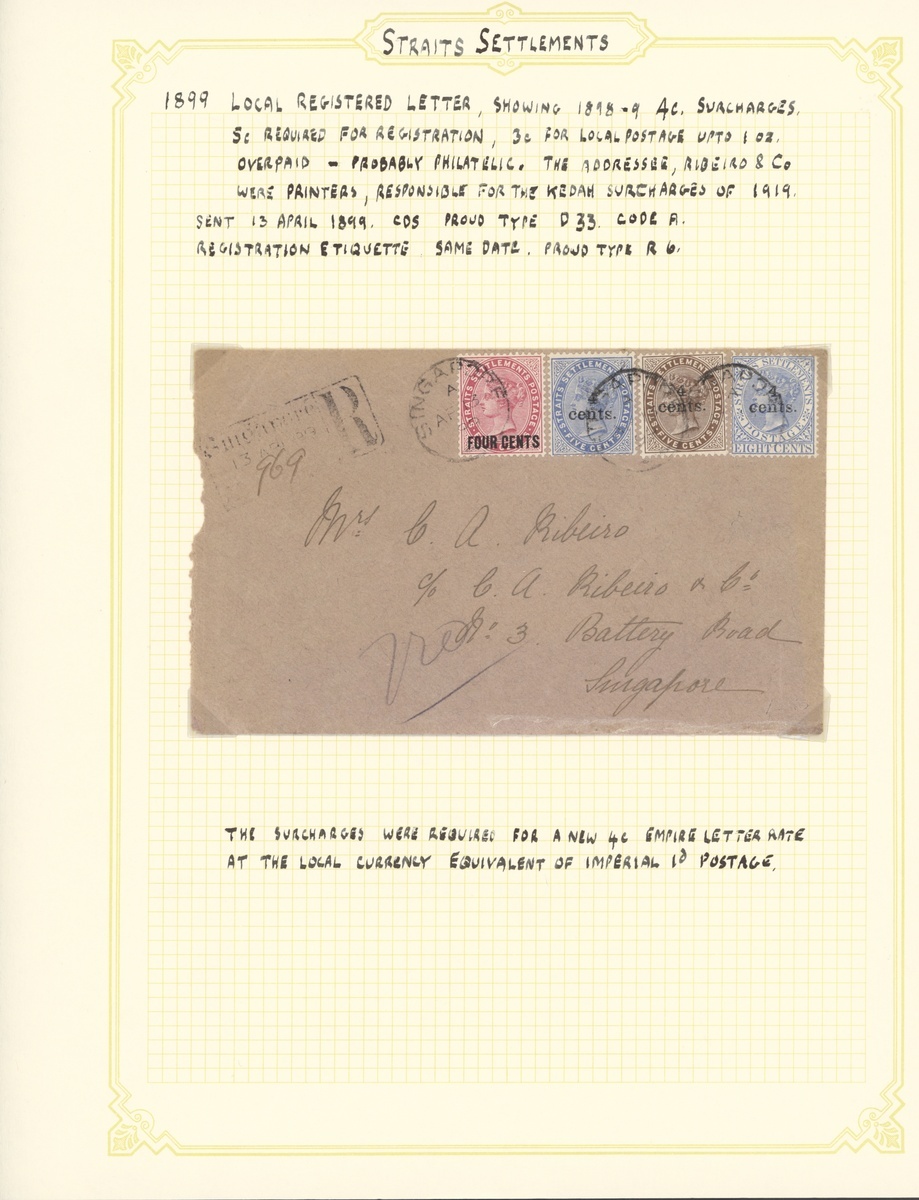 STRAITS SETTLEMENTS
1899 LOCAL REGISTERED LETTER, SHOWING 1898-9 4c. SURCHARGES.
5c REQUIRED FOR REGISTRATION, 3c FOR LOCAL POSTAGE UPTO 1 OZ.
OVERPAID - PROBABLY PHILATELIC. THE ADDRESSEE, RIBEIRO & Co
WERE PRINTERS, RESPONSIBLE FOR THE KEDAH SURCHARGES OF 1919.
SENT 13 APRIL 1899. CDS PROUD TYPE D33. CODE A.
REGISTRATION ETIQUETTE SAME DATE. PROUD TYPE R 6.
SINGAPORE
A
AP
R
13 AP
969
STRAITS SETTLEMENTS POSTAGE
FOUR CENTS
STRAITS SETTLEMENTS POSTAGE
cents.
FIVE CENTS
STRAITS SETTLEMENTS POSTAGE
4
cents.
FIVE CENTS
SETTLEMENTS
cents.
POSTAGE
EIGHT CENTS
Mrs C. A. Ribeiro
c/o C. A. Ribeiro & Co
No 3. Battery Road
Singapore
THE SURCHARGES WERE REQUIRED FOR A NEW 4c EMPIRE LETTER RATE
AT THE LOCAL CURRENCY EQUIVALENT OF IMPERIAL 1d POSTAGE.